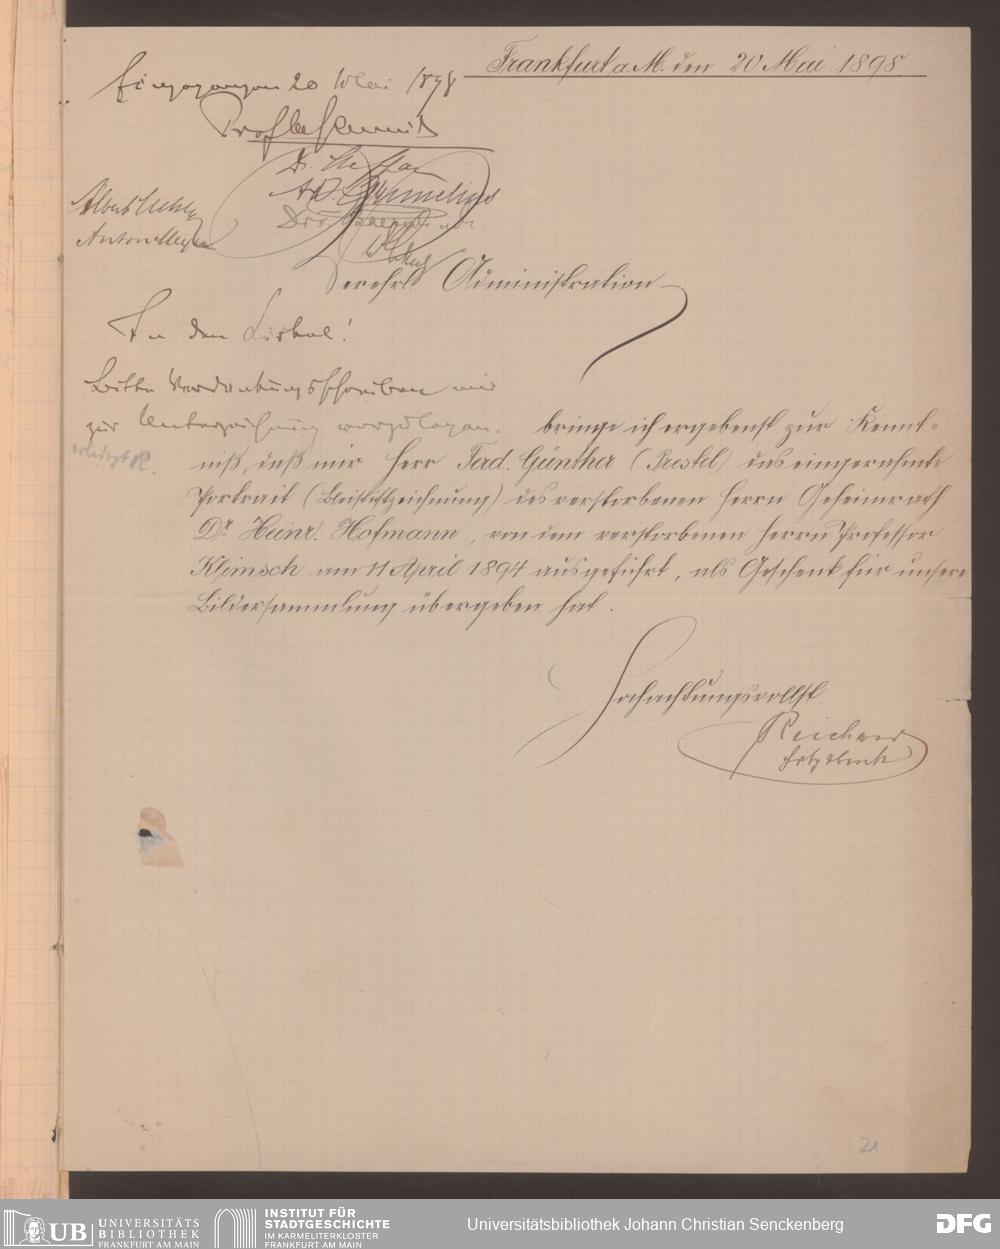 Frankfurt a M. den 20 Mai 1898.
Eingegangen 20 Mai 1898
Verehrl. Administration
In den Zirkel!
Bitte Verdankungsschreiben mir
zur Unterzeichnung vorzulegen.
erledigt R.
bringe ich ergebenst zur Kennt-
niß, daß mir Herr Ferd. Günther (Prestel) das eingerahmte
Portrait (Bleistiftzeichnung) des verstorbenen Herrn Geheimrath
Dr Heinr. Hofmann, von dem verstorbenen Herrn Professor
Klimsch am 11 April 1894 ausgeführt, als Geschenk für unsere
Bildersammlung übergeben hat.
Hochachtungsvollst
Reichard
21
UB UNIVERSITÄTS
BIBLIOTHEK
FRANKFURT AM MAIN
INSTITUT FÜR
STADTGESCHICHTE
IM KARMELITERKLOSTER
FRANKFURT AM MAIN
Universitätsbibliothek Johann Christian Senckenberg
DFG